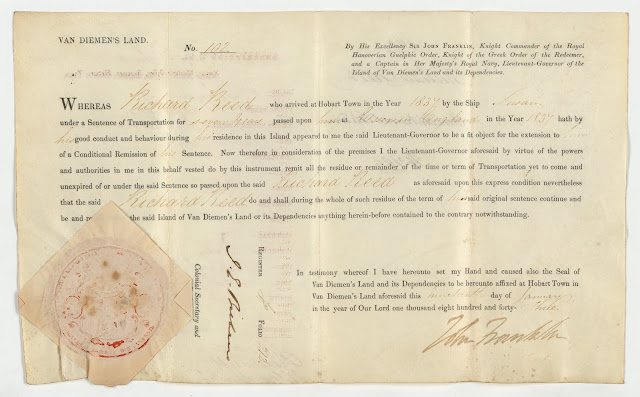 VAN DIEMEN'S LAND.
No. 102
By His Excellency SIR JOHN FRANKLIN, Knight Commander of the Royal
Hanoverian Guelphic Order, Knight of the Greek Order of the Redeemer,
and a Captain in Her Majesty's Royal Navy, Lieutenant-Governor of the
Island of Van Diemen's Land and its Dependencies.
WHEREAS Richard Reed who arrived at Hobart Town in the Year 1837 by the Ship Swan
under a Sentence of Transportation for seven years passed upon him at England in the Year 1837 hath by
his good conduct and behaviour during his residence in this Island appeared to me the said Lieutenant-Governor to be a fit object for the extension to him
of a Conditional Remission of his Sentence. Now therefore in consideration of the premises I the Lieutenant-Governor aforesaid by virtue of the powers
and authorities in me in this behalf vested do by this instrument remit all the residue or remainder of the time or term of Transportation yet to come and
unexpired of or under the said Sentence so passed upon the said Richard Reed as aforesaid upon this express condition nevertheless
that the said Richard Reed do and shall during the whole of such residue of the term of his said original sentence continue and
be and the said Island of Van Diemen's Land or its Dependencies anything herein-before contained to the contrary notwithstanding.
Colonial Secretary and
REGISTER FOLIO 72
In testimony whereof I have hereunto set my Hand and caused also the Seal of
Van Diemen's Land and its Dependencies to be hereunto affixed at Hobart Town in
Van Diemen's Land aforesaid this day of January
in the year of Our Lord one thousand eight hundred and forty- two.
John Franklin